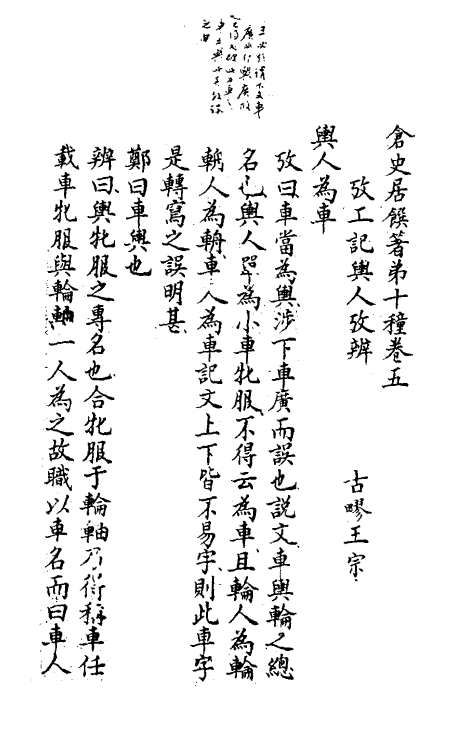 倉史居饌著弟十種卷五
攷工記輿人攷辨
古鄝王宗
輿人為車
攷曰車當為輿涉下車廣而誤也說文車輿輪之總
名也輿人單為小車牝服不得云為車且輪人為輪
輈人為輈車人為車記文上下皆不易字則此車字
是轉寫之誤明甚
鄭曰車輿也
辨曰輿牝服之專名也合牝服于輪軸乃得稱車任
載車牝服與輪軸一人為之故職以車名而曰車人